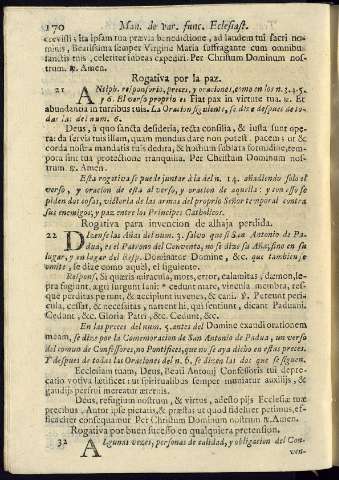 170 Man. de var. func. Eclesiast.
creviisti: Ita ipsam tua prævia benedictione, ad laudem tui sacri no-
minis, Beatissima semper Virgine Maria suffragante cum omnibus
sanctis tuis, celeriter iubeas expediri. Per Christum Dominum nos-
trum. ℞. Amen.
Rogativa por la paz.
21 Añ. Psalm. responsorio, preces, y oraciones, como en los n. 3. 4. 5.
y 6. El verso proprio es Fiat pax in virtute tua. ℞. Et
abundantia in turribus tuis. La Oracion siguiente, se dize despues de to-
das las del num. 6.
Deus, à quo sancta desideria, recta consilia, & iusta sunt ope-
ra: da servis tuis illam, quam mundus dare non potest, pacem: ut & 
corda nostra mandatis tuis dedita, & hostium sublata formidine, tem-
pora sint tua protectione tranquila. Per Christum Dominum nos-
trum ℞. Amen.
Esta rogativa se puede juntar à la del n. 14. añadiendo solo el
verso, y oracion de esta al verso, y oracion de aquella: y con esso se
piden dos cosas, victoria de las armas del proprio Señor temporal contra
sus enemigos, y paz entre los Principes Catholicos.
Rogativa para invencion de alhaja perdida.
22 Dizense las Añas del num. 3. salvo que si San Antonio de Pa-
dua, es el Patrono del Convento, no se dize su Aña, sino en su
lugar, y en lugar del Resp. Dominator Domine, &c. que tambien se
omite, se dize como aquel, el siguiente.
Respons. Si quæris miracula, mors, error, calamitas, dæmon, le-
pra fugiunt, ægri surgunt sani: * cedunt mare, vincula, membra, res-
que perditas petunt, & accipiunt iuvenes, & cani. ℣. Pereunt peri-
cula, cessat, & necessitas, narrent hi, qui sentiunt, dicant Paduani.
Cedunt, &c. Gloria Patri, &c. Cedunt, &c.
En las preces del num. 5. antes del Domine exaudi orationem
meam, se dize por la Comemoracion de San Antonio de Padua, un verso
del comun de Confessores, no Pontifices, que no se aya dicho en estas preces.
Y despues de todas las Oraciones del n. 6. se dizen las dos que se siguen.
Ecclesiam tuam, Deus, Beati Antonij Confessoris tui depre-
catio votiva lætificet: ut spiritualibus semper muniatur auxilijs, &
gaudijs perfrui mereatur æternis.
Deus, refugium nostrum, & virtus, adesto pijs Ecclesiæ tuæ
precibus, Autor ipse pietatis, & præsta: ut quod fideliter petimus, ef-
ficaciter consequamur Per Christum Dominum nostrum ℞. Amen.
Rogativa por buen sucesso en qualquiera pretension.
32 Algunas vezes, personas de calidad, y obligacion del Con-
ven-